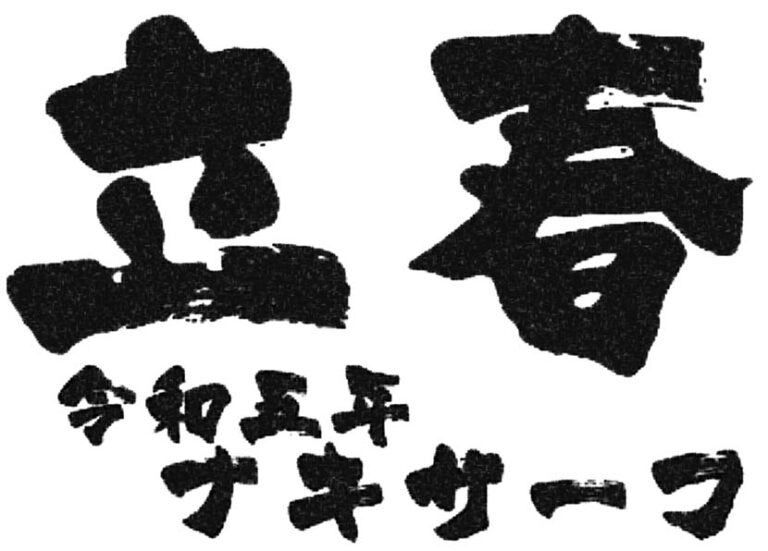 立春
令和五年
ナキサーフ